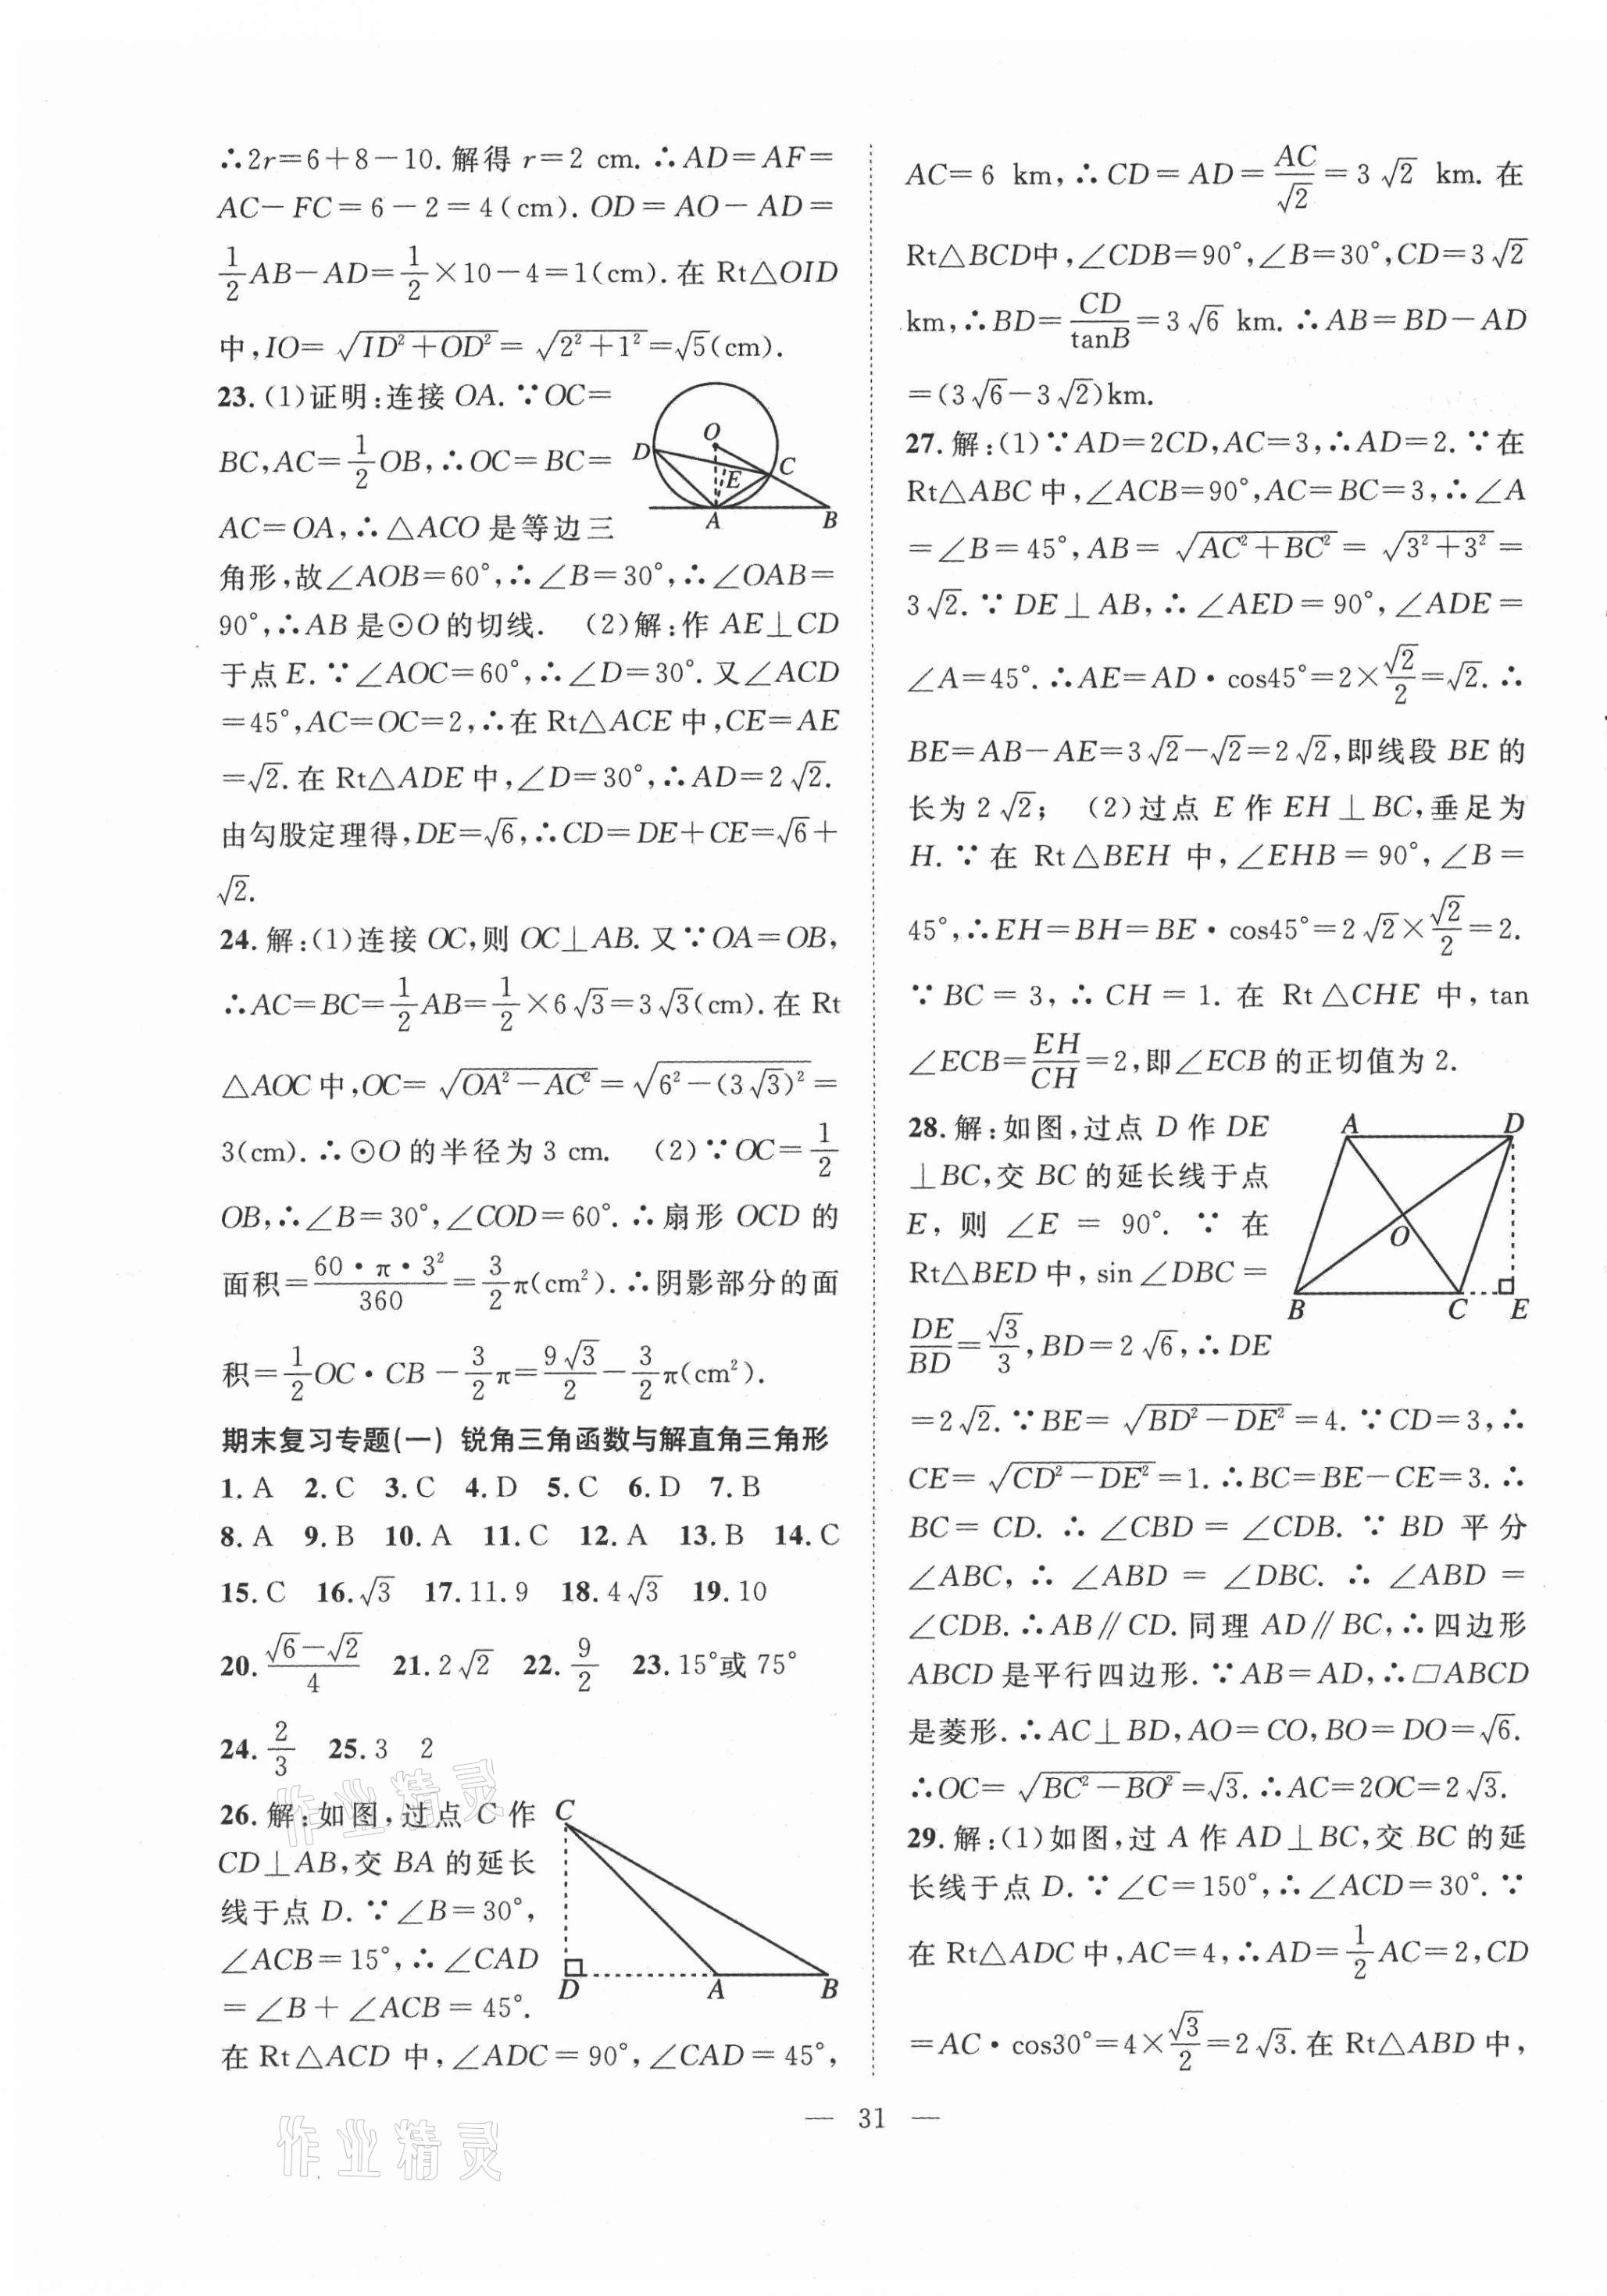 ∴2r=6+8-10.解得 r=2 cm.∴AD=AF=
AC-FC=6-2=4(cm).OD=AO-AD=
1/2AB-AD=1/2×10-4=1(cm).在 Rt△OID
中,IO=√(ID²+OD²)=√(2²+1²)=√5(cm).
23.(1)证明:连接 OA.∵OC=
BC,AC=1/2OB,∴OC=BC=
AC=OA,∴△ACO 是等边三
角形,故∠AOB=60°,∴∠B=30°,∴∠OAB=
90°,∴AB 是⊙O 的切线. (2)解:作 AE⊥CD
于点 E.∵∠AOC=60°,∴∠D=30°.又∠ACD
=45°,AC=OC=2,∴在 Rt△ACE 中,CE=AE
=√2.在 Rt△ADE 中,∠D=30°,∴AD=2√2.
由勾股定理得,DE=√6,∴CD=DE+CE=√6+
√2.
O
D
C
E
A
B
24.解:(1)连接 OC,则 OC⊥AB.又∵OA=OB,
∴AC=BC=1/2AB=1/2×6√3=3√3(cm).在 Rt
△AOC 中,OC=√(OA²-AC²)=√(6²-(3√3)²)=
3(cm).∴⊙O 的半径为 3 cm. (2)∵OC=1/2
OB,∴∠B=30°,∠COD=60°.∴扇形 OCD 的
面积=(60·π·3²)/360=3/2π(cm²).∴阴影部分的面
积=1/2OC·CB-3/2π=9√3/2-3/2π(cm²).
期末复习专题(一) 锐角三角函数与解直角三角形
1.A 2.C 3.C 4.D 5.C 6.D 7.B
8.A 9.B 10.A 11.C 12.A 13.B 14.C
15.C 16.√3 17.11.9 18.4√3 19.10
20.(√6-√2)/4 21.2√2 22.9/2 23.15°或 75°
24.2/3 25.3 2
26.解:如图,过点 C 作
CD⊥AB,交 BA 的延长
线于点 D.∵∠B=30°,
∠ACB=15°,∴∠CAD
=∠B+∠ACB=45°.
在 Rt△ACD 中,∠ADC=90°,∠CAD=45°,
C
D
A
B
AC=6 km,∴CD=AD=AC/√2=3√2 km.在
Rt△BCD中,∠CDB=90°,∠B=30°,CD=3√2
km,∴BD=CD/tanB=3√6 km.∴AB=BD-AD
=(3√6-3√2)km.
27.解:(1)∵AD=2CD,AC=3,∴AD=2.∵在
Rt△ABC 中,∠ACB=90°,AC=BC=3,∴∠A
=∠B=45°,AB=√(AC²+BC²)=√(3²+3²)=
3√2.∵DE⊥AB,∴∠AED=90°,∠ADE=
∠A=45°.∴AE=AD·cos45°=2×√2/2=√2.∴
BE=AB-AE=3√2-√2=2√2,即线段 BE 的
长为 2√2; (2)过点 E 作 EH⊥BC,垂足为
H.∵在 Rt△BEH 中,∠EHB=90°,∠B=
45°,∴EH=BH=BE·cos45°=2√2×√2/2=2.
∵BC=3,∴CH=1.在 Rt△CHE 中,tan
∠ECB=EH/CH=2,即∠ECB 的正切值为 2.
28.解:如图,过点 D 作 DE
⊥BC,交 BC 的延长线于点
E,则 ∠E=90°.∵在
Rt△BED 中,sin∠DBC=
DE/BD=√3/3,BD=2√6,∴DE
A
D
O
B
C
E
=2√2.∵BE=√(BD²-DE²)=4.∵CD=3,∴
CE=√(CD²-DE²)=1.∴BC=BE-CE=3.∴
BC=CD.∴∠CBD=∠CDB.∵BD 平分
∠ABC,∴∠ABD=∠DBC.∴∠ABD=
∠CDB.∴AB∥CD.同理 AD∥BC,∴四边形
ABCD 是平行四边形.∵AB=AD,∴□ABCD
是菱形.∴AC⊥BD,AO=CO,BO=DO=√6.
∴OC=√(BC²-BO²)=√3.∴AC=2OC=2√3.
29.解:(1)如图,过 A 作 AD⊥BC,交 BC 的延
长线于点 D.∵∠C=150°,∴∠ACD=30°.∵
在 Rt△ADC 中,AC=4,∴AD=1/2AC=2,CD
=AC·cos30°=4×√3/2=2√3.在 Rt△ABD 中,
— 31 —
作业精灵
作业精灵